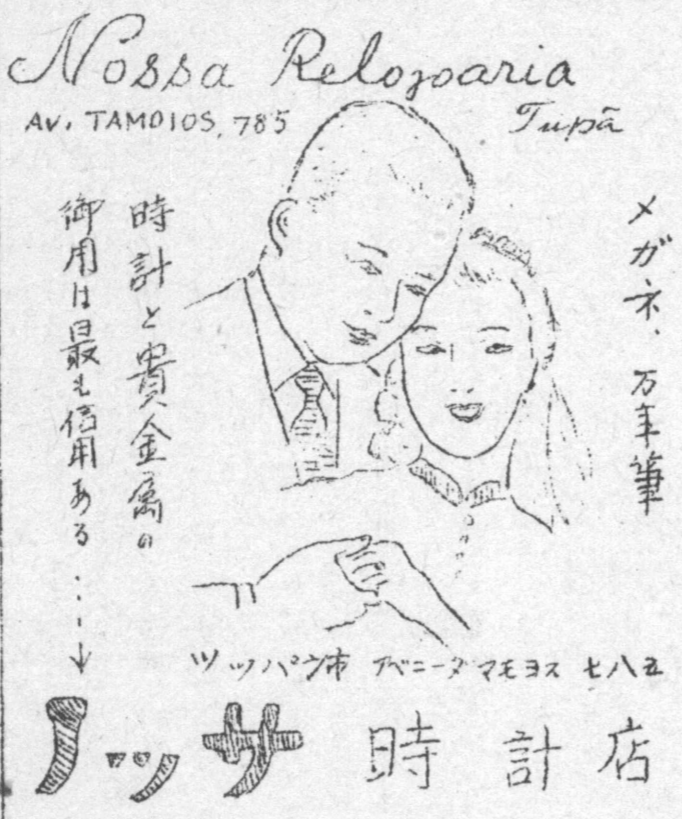 Nossa Relojoaria
Av. TAMOIOS, 785
Tupã
メガネ、万年筆
時計と貴金属の
御用は最も信用ある・・・・
ツッパン市 アベニータマモヨス 七八五
ノッサ時計店